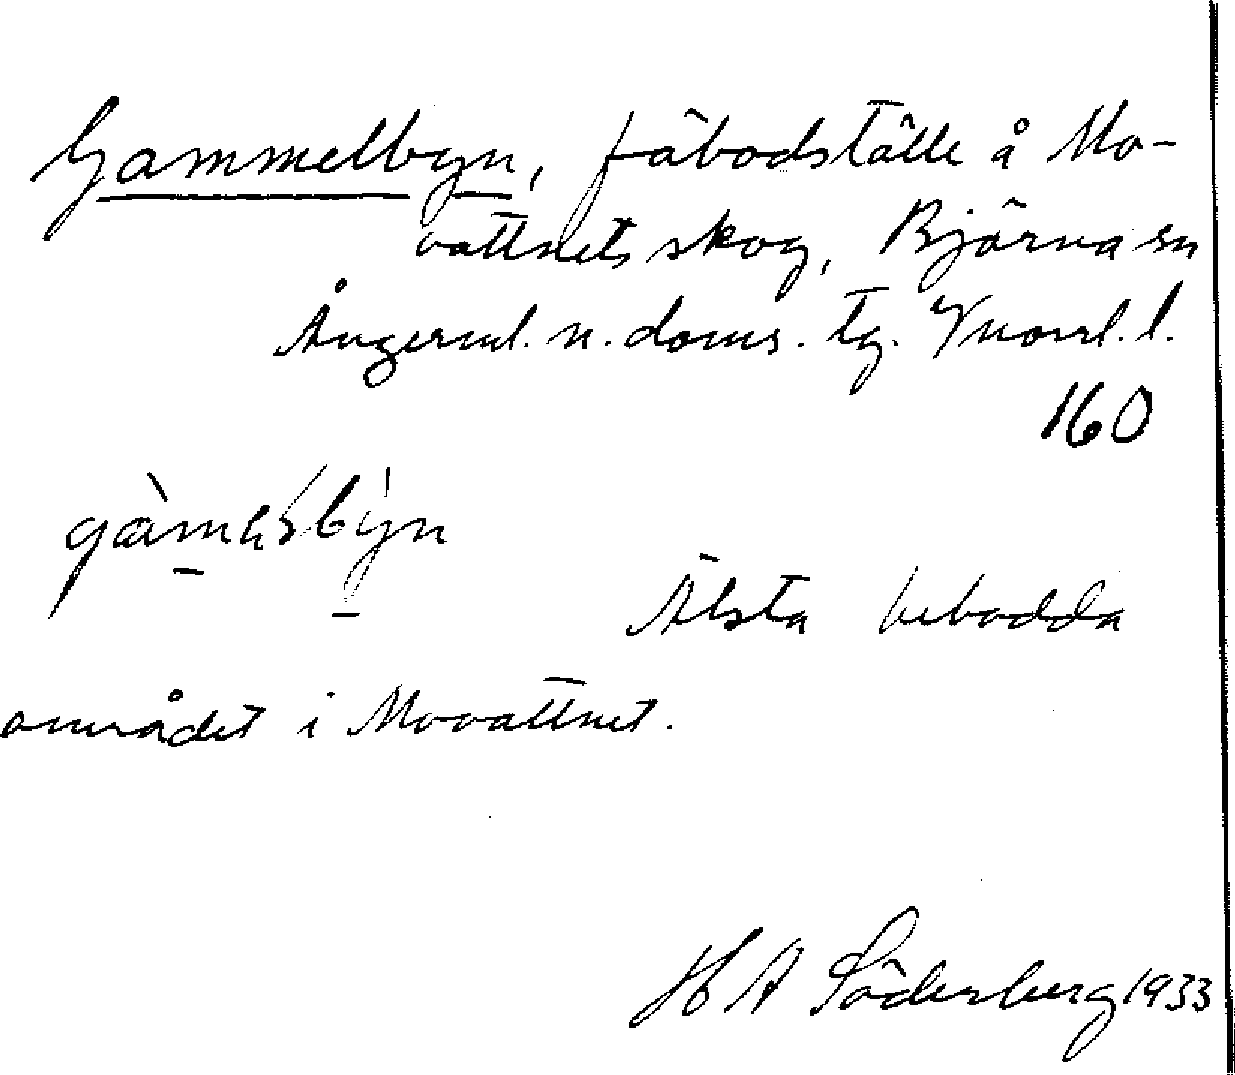 Gammelbyn, fäbodställe å Mo-
vattnets skog, Björna sn
Ångerml. n. doms. tg. Vnorrl. l.
160
Älsta bebodda
området i Movattnet.
H A Söderberg 1933